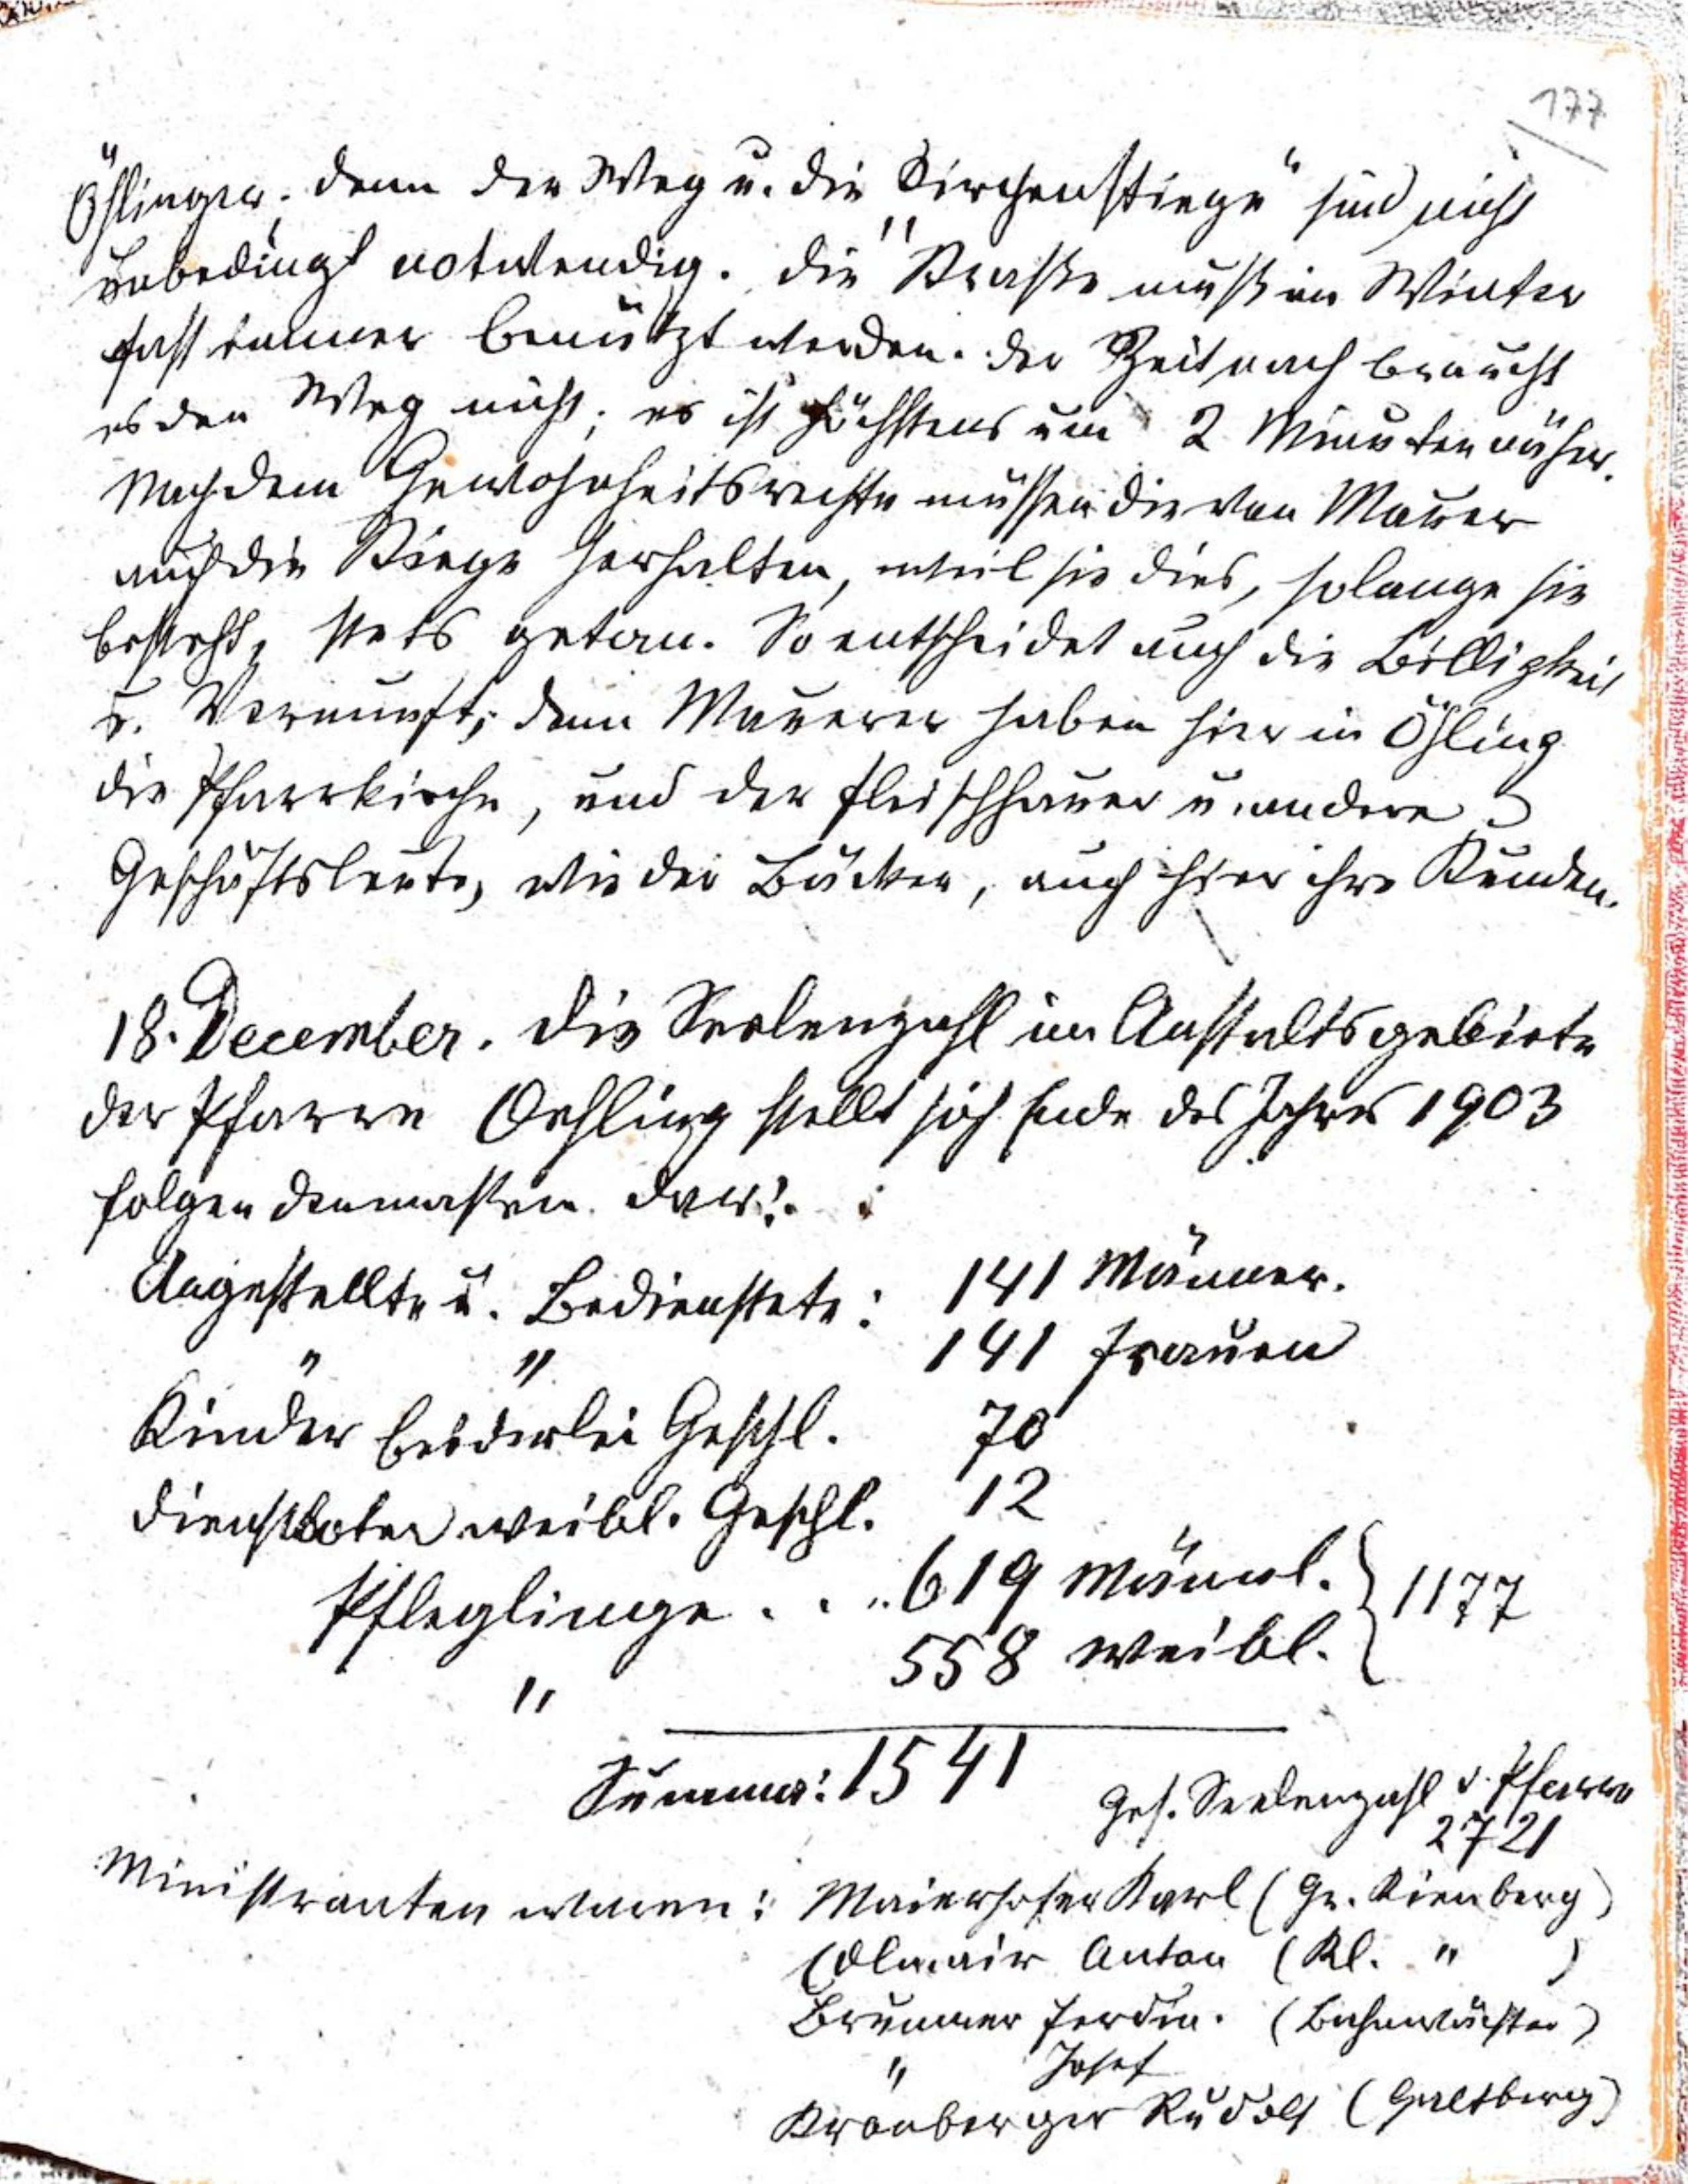 177
Öhlinger; denn der Weg u. die „Kirchenstiege“ sind nicht
unbedingt notwendig. Die Straße muß im Winter
fast immer benützt werden. Der Zeit nach braucht
es den Weg nicht; es ist höchstens um 2 Minuten näher.
Nach dem Gewohnheitsrechte müssen die von Mauer
auch die Stiege herhalten, weil sie dies, solange sie
besteht, stets getan. So entscheidet auch die Billigkeit
u. Vernunft; denn Mauerer haben hier in Öhling
die Pfarrkirche, und der Fleischhauer u. andere
Geschäftsleute, wie der Bäcker, auch hier ihre Kunden.
18. December. Die Seelenzahl im Anstaltsgebiete
der Pfarre Oehling stellt sich Ende des Jahres 1903
folgendermaßen dar:
Angestellte u. Bedienstete: 141 Männer.
" " 141 Frauen
Kinder beiderlei Geschl. 70
Dienstboten weibl. Geschl. 12
Pfleglinge . . .. 619 männl. } 1177
" 558 weibl.
Summa: 1541
Ges. Seelenzahl d. Pfarre
2721
Ministranten waren: Maierhofer Karl (Gr. Kienberg)
Edlmair Anton (Kl. " )
Brunner Ferdin. (Bahnwächter)
" Josef
Kronberger Rudolf (Galtberg)